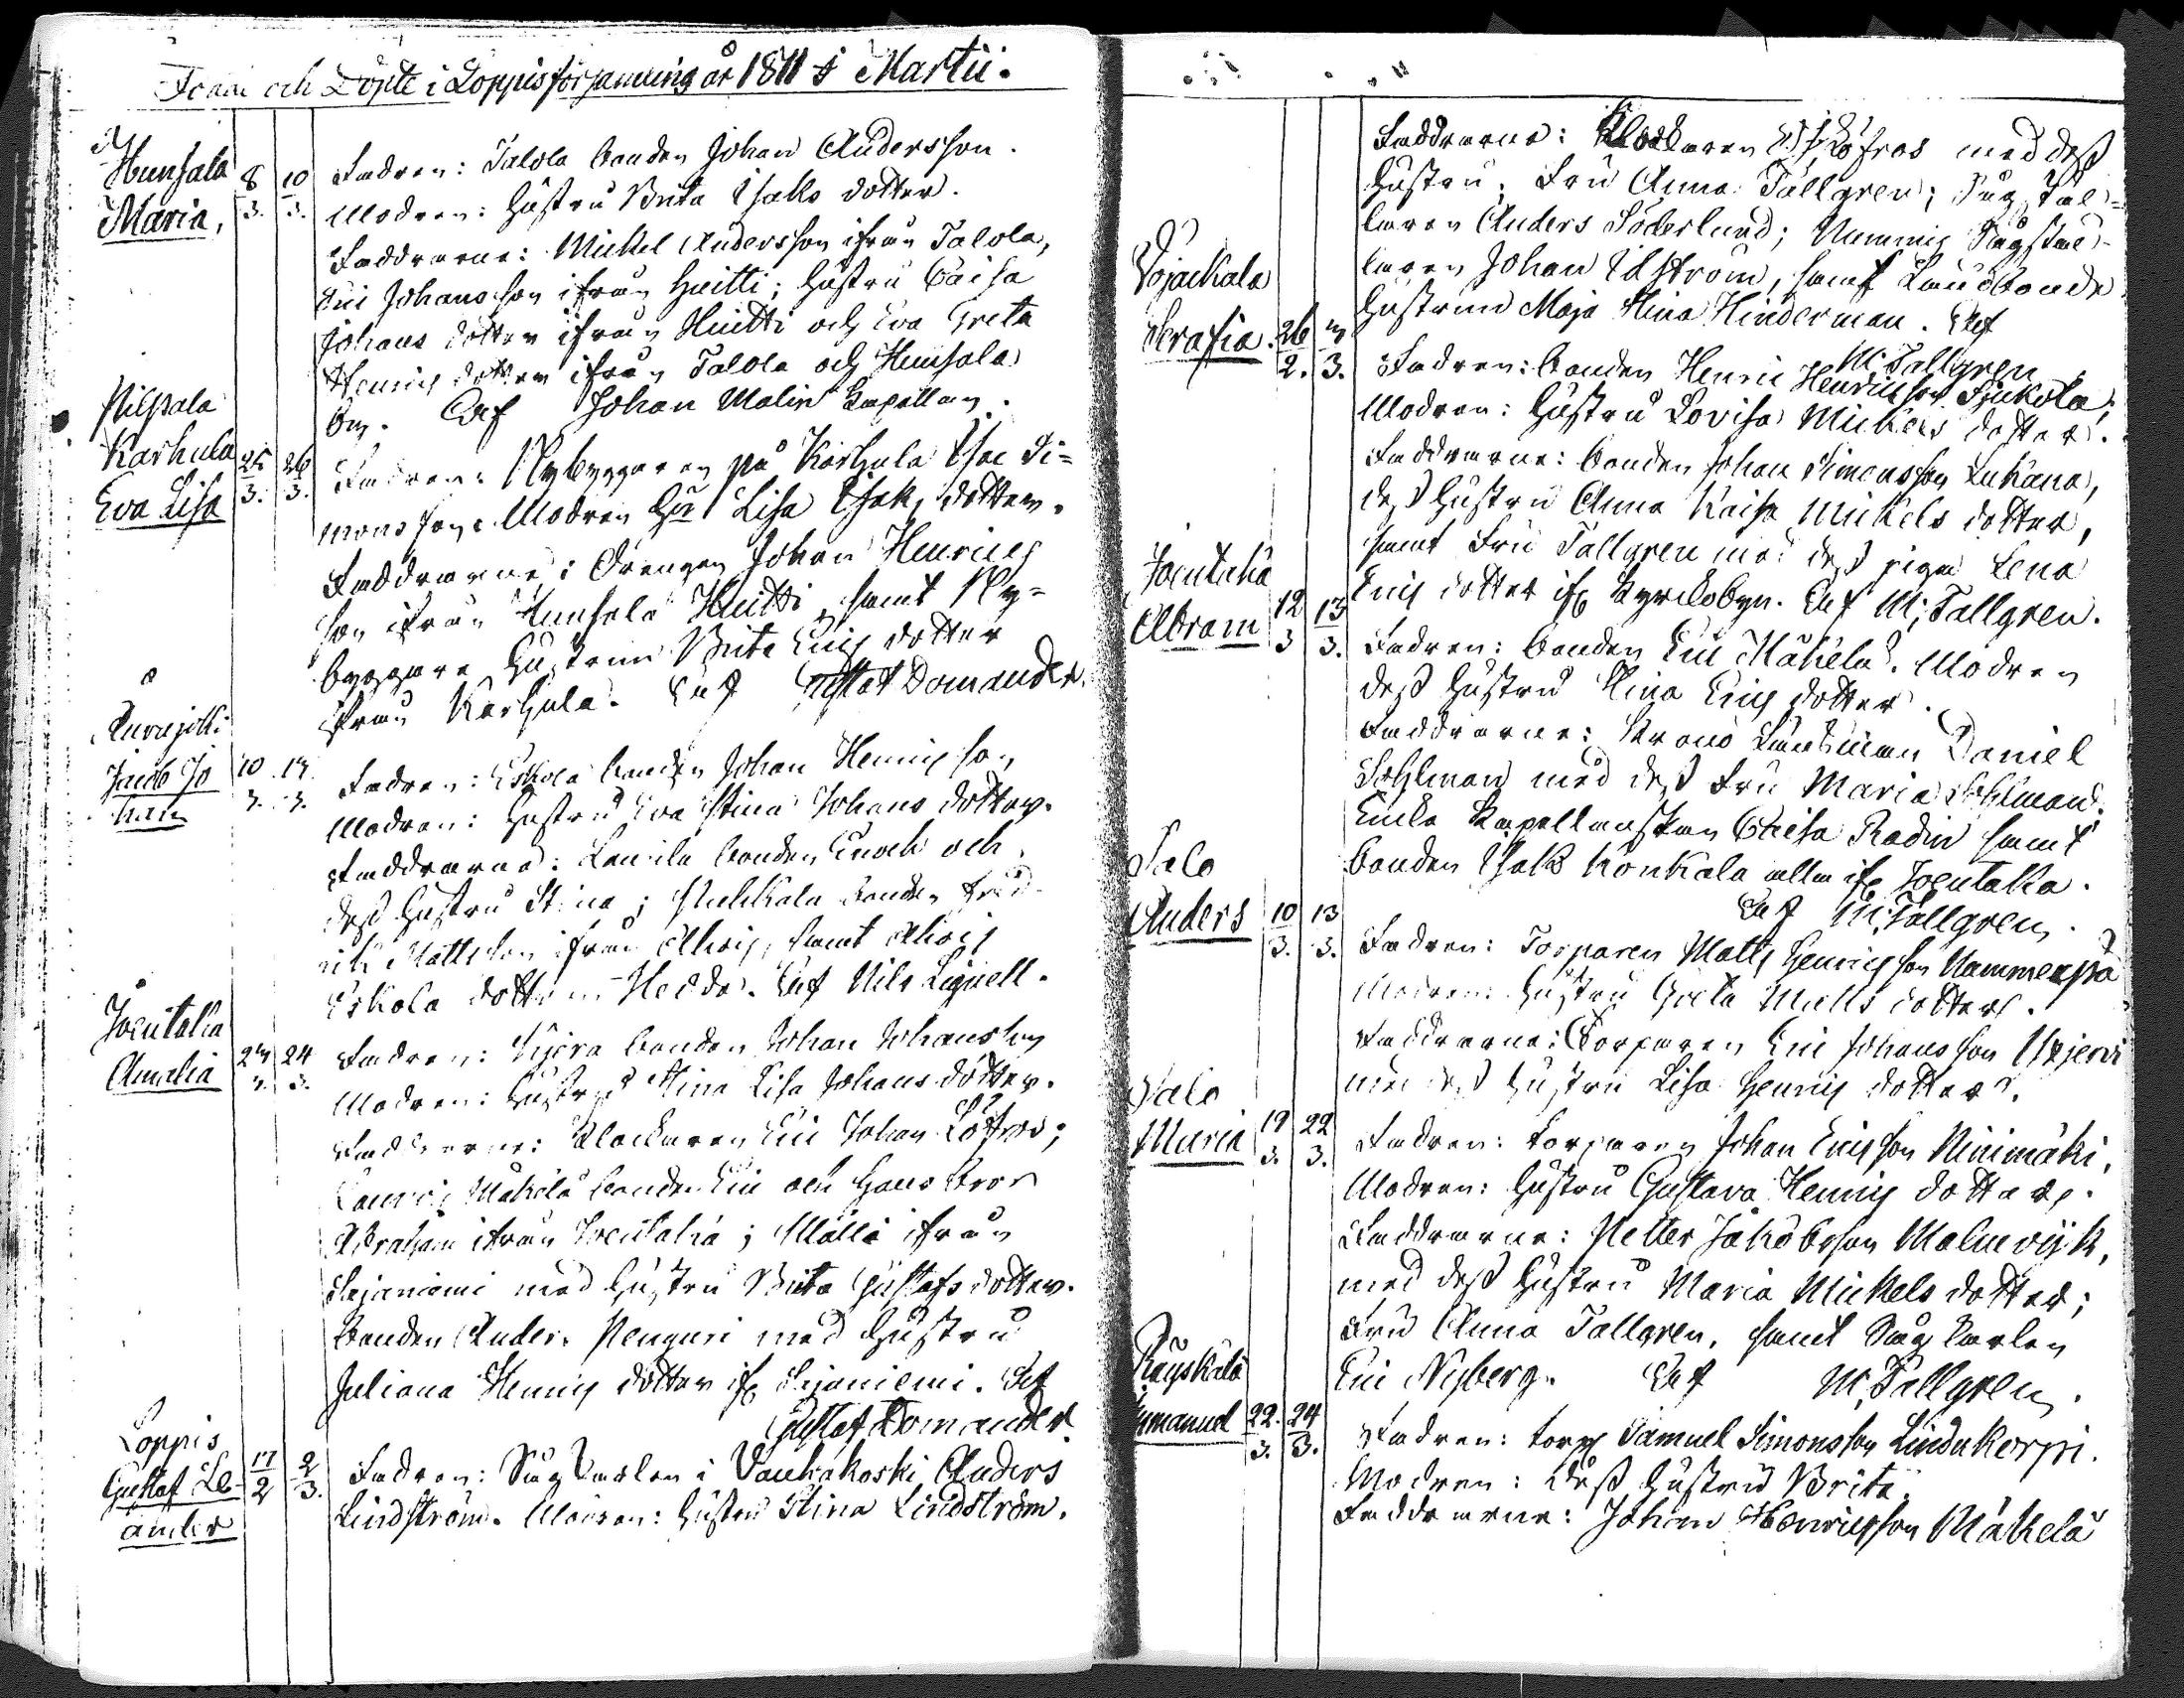 Födde och Döpte i Loppis församling år 1811 i Martii.
Hunsala
Maria,
8/3. 10/3.
Fadren: Talola bonden Johan Andersson.
Modren: Hustru Brita Isaks dotter.
Faddrarne: Mickel Andersson ifrån Talola,
Eric Johansson ifrån Huitti; Hustru Caisa
Johans dotter ifrån Huitti och Eva Greta
Henrics dotter ifrån Talola och Hunsala
by. Test Johan Malin Capellan.
Pilpala
Karhula
Eva Lisa
25/3. 26/3.
Fadren: Nybyggaren på Karhula Isac Si=
monsson. Modren Hu Lisa Isaks dotter.
Faddrarne: Drengen Johan Henrics
son ifrån Hunsala Huitti, samt Ny=
byggare Hustrun Brita Erics dotter
ifrån Karhula. Test Gustaf Domander.
Jacob Jo
han
10/3. 13/3.
Fadren: Eskola bonden Johan Henricsson
Modren: Hustru Eva Stina Johans dotter.
Faddrarne: Laurila bonden Enoch och
dess Hustru Stina; bonden Fred
ric Mattsson ifrån samt
Eskola dottren Hedda. Test Nils Lignell.
Joentaka
Amalia
24/3.
Fadren: bonden Johan Johansson
Modren: Hustru Stina Lisa Johans dotter.
Faddrarne: Klockaren Eric Johan Löfros;
Mäkelä bonden Eric och Hans bror
Abraham ifrån Joentaka; ifrån
Sajaniemi med Hustru Brita Gustafs dotter.
bonden Anders Penguri med Hustru
Juliana Henrics dotter ifr Sajaniemi. Test
Gustaf Domander.
Loppis
Gustaf Le-
ander
17/2 2/3.
Fadren: Sågkarlen i Vauhakoski Anders
Lindström. Modren: Hustru Stina Lindström.
Faddrarne: Klockaren E. J. Löfros med dess
Hustru; Fru Anna Tallgren; Sågstäl=
laren Anders Söderlund; Nummis Sågstäl-
laren Johan Idström, samt Landbonde
Hustrun Maja Stina Hinderman. Test
M: Tallgren
Vojakkala
Serafia.
26/2. /3.
Fadren: bonden Henric Henricsson Sjukola;
Modren: Hustru Lovisa Mickels dotter.
Faddrarne: bonden Johan Simonsson Lukana,
dess Hustru Anna Kaisa Mickels dotter,
samt Fru Tallgren med dess piga Lena
Erics dotter ifr Kyrkobyn. Test M: Tallgren.
Joentaka
Abram
12/3 13/3.
Fadren: bonden Eric Mäkelä. Modren
dess Hustru Stina Erics dotter.
Faddrarne: Krono Länsman Daniel
Sohlman med dess Fru Maria Sohlman;
Enka Kapellanskan Chrisa Radin samt
bonden Isak Konkala alla ifr Joentaka.
Test M: Tallgren.
Salo
Anders
10/3. 13/3.
Fadren: Torparen Matts Henricsson Nummenpä
Modren: Hustru Greta Matts dotter.
Faddrarne: Torparen Eric Johansson
med dess Hustru Lisa Henrics dotter.
Salo
Maria
19/3. 22/3.
Fadren: torparen Johan Ericsson Niinimäki.
Modren: Hustru Gustava Henrics dotter.
Faddrarne: Petter Jakobsson Malmevijk,
med dess Hustru Maria Mickels dotter;
Fru Anna Tallgren, samt Sågkarlen
Eric Nyberg. Test M: Tallgren.
Räyskälä
Emanuel
22./3. 24/3.
Fadren: torp Samuel Simonsson Lindukorpi.
Modren: Dess Hustru Brita.
Faddrarne: Johan Henricsson Mäkelä